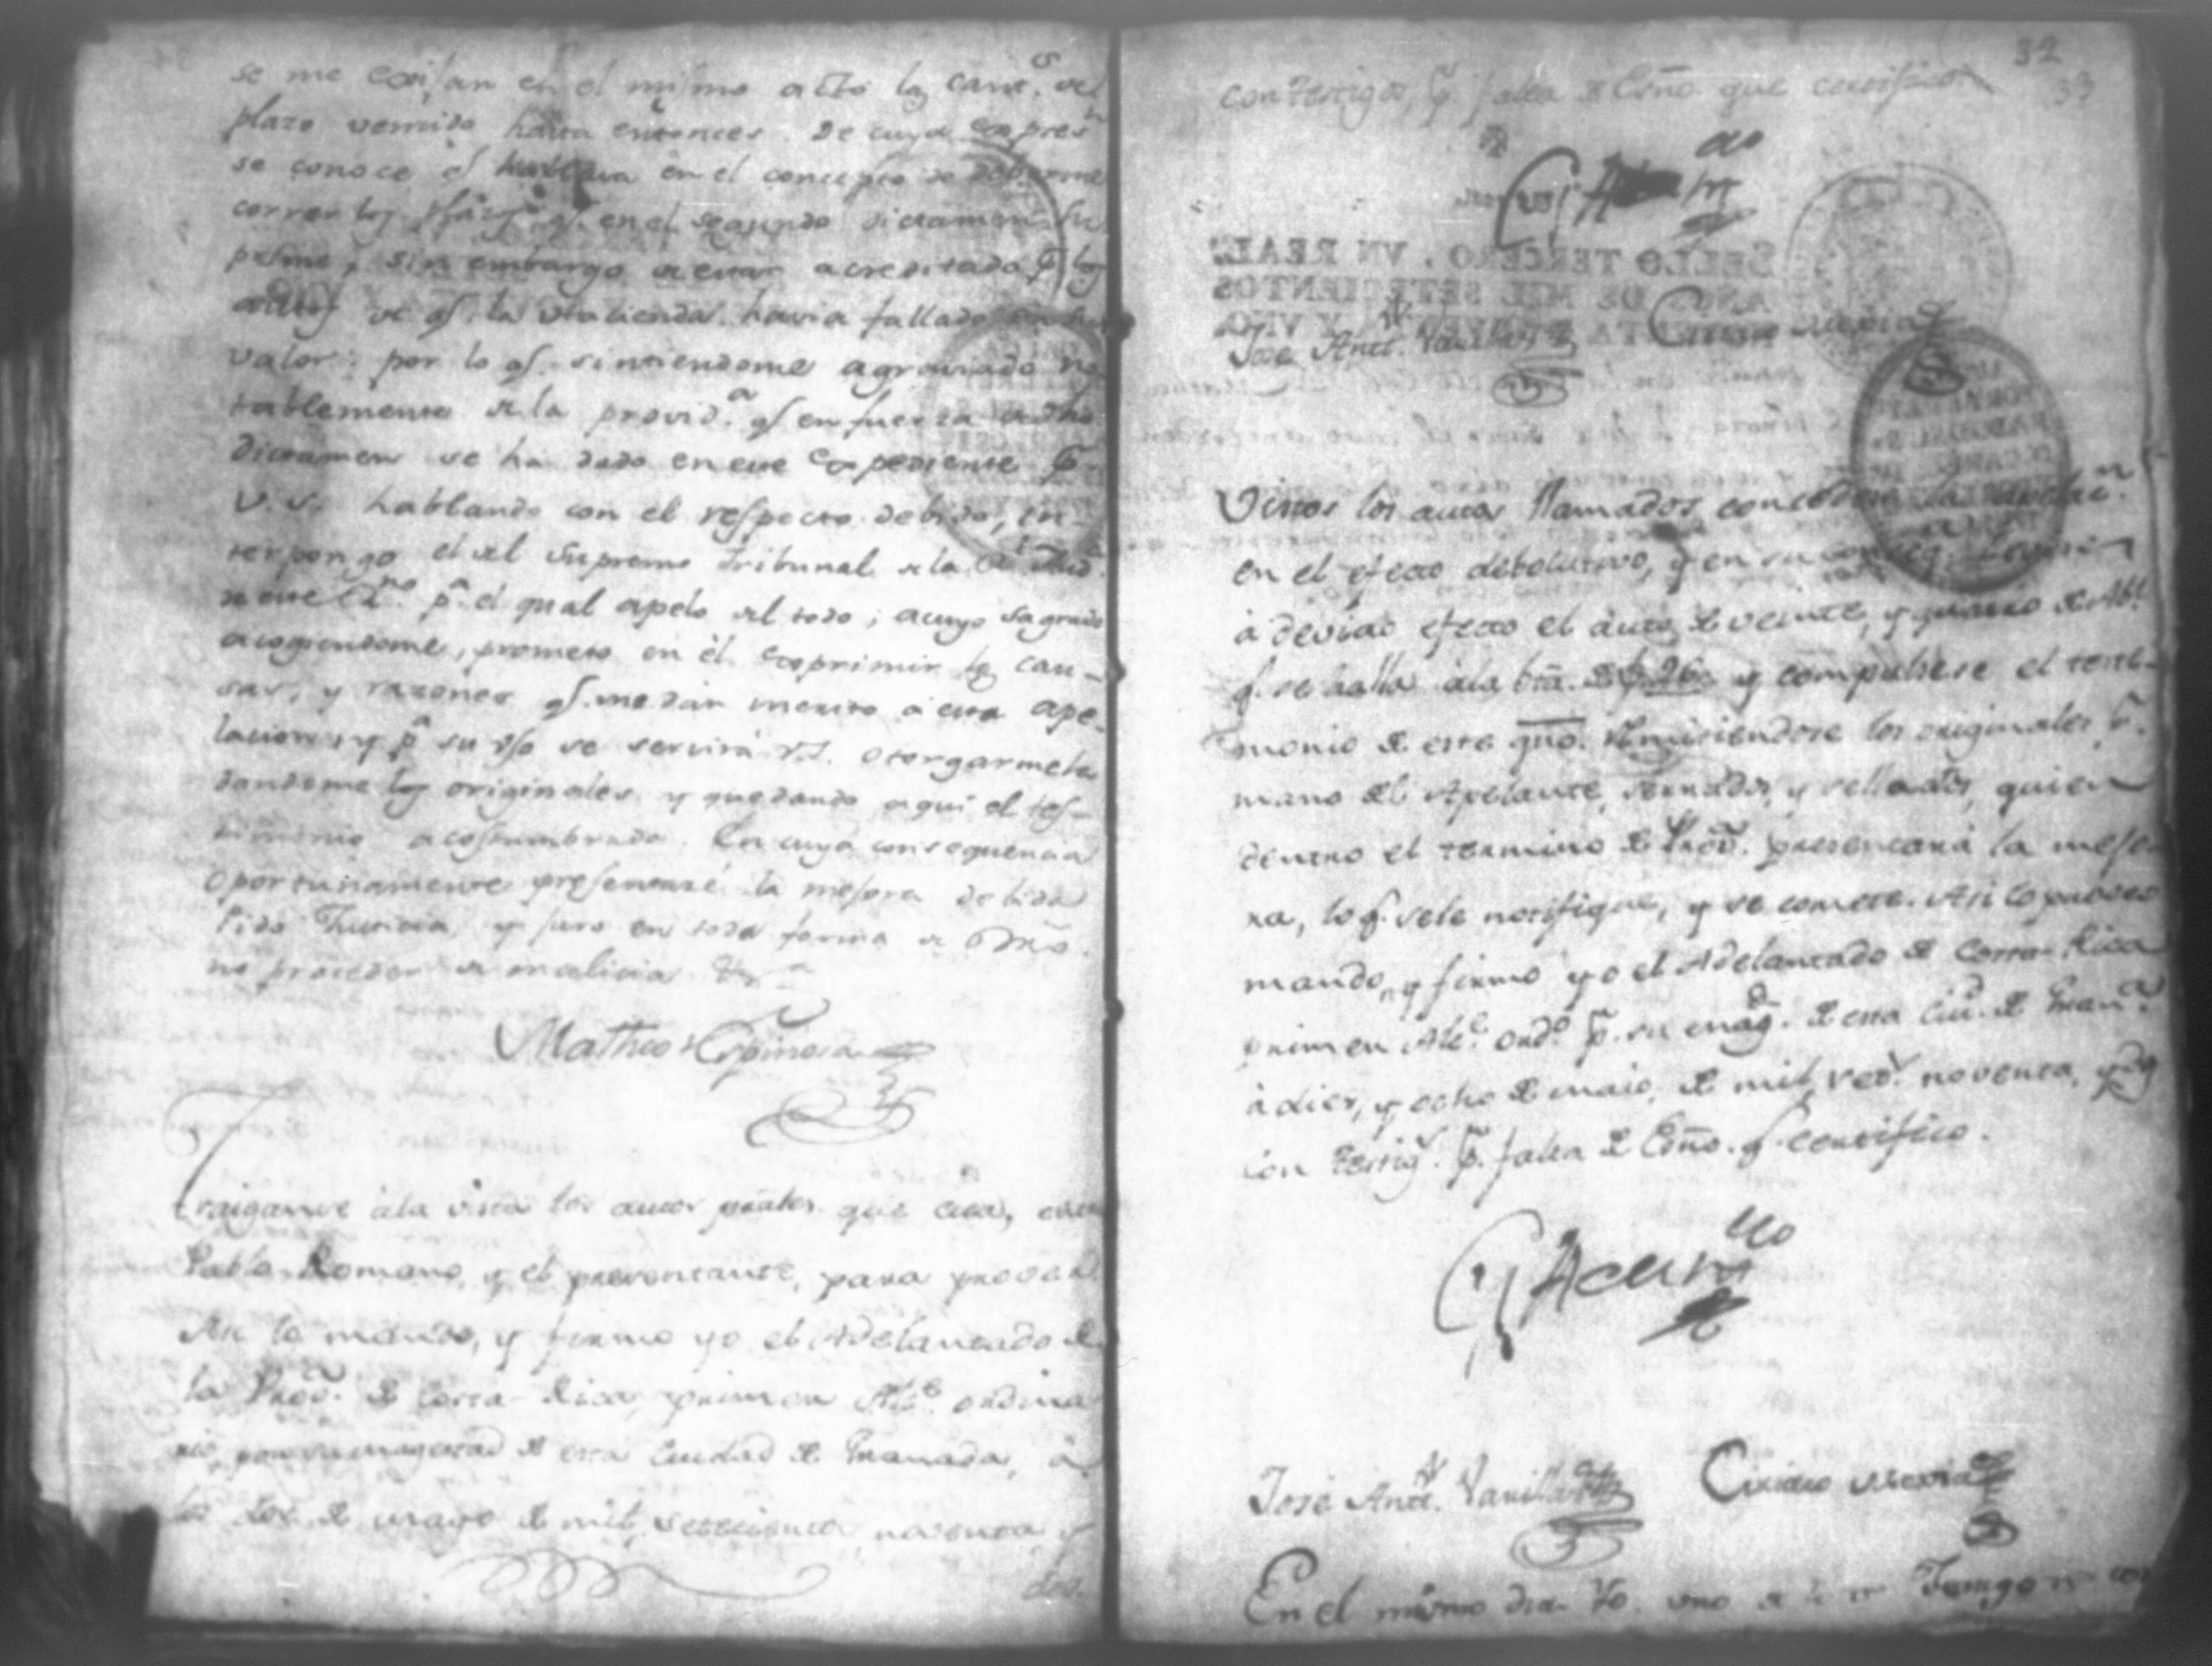 se me exijan en el mismo acto las cant.s del
plazo vencido hasta entonces. De cuya expres.n
se conoce q.e hablava en el concepto de deberme
correr los plazos q.e en el segundo dictamen su
prime, sin embargo de estar acreditado p.r los
autos de q.e la Hacienda havia fallado
valor: por lo q.e sintiendome agraviado no
tablemente de la provid.a q.e en fuerza de dho
dictamen se ha dado en este Expediente p.r
V.S. hablando con el respecto debido, in-
terpongo el del Supremo Tribunal de la
de este p.a el qual apelo del todo; a cuyo sagrado
acogiendome, prometo en èl exprimir las cau-
sas, y razones q.e me dàn merito a esta ape-
lacion, y p.a su uso se servirà V.S. otorgarmela
dandome los originales y quedando aqui el tes-
timonio acostumbrado. En cuya consequencia
oportunamente presentaré la mejora debida
Pido Justicia, y juro en toda forma de Dro.
no proceder de malicia &.a
Matheo Espinosa
Traiganse àla vista los autos que cita, entre
Pablo Romano, y el presentante, para proveer
Asi lo mando, y firmo yo el Adelantado de
la Prov.a de Costa-Rica, primer Alc.e ordina
rio, por su magestad de esta Ciudad de Granada, à
los dos de mayo de mil, setecientos, noventa, y
dos.
32
33
con testigos, p.r falta de Esno. que certifico
SELLO TERCERO, VN REAL,
AÑOS DE MIL SETECIENTOS
NOVENTA Y VNO
José Ant.o Varilla
Ciriaco
Vistos los autos llamados,
en el efecto debolutivo, y en su
à devido efecto el àuto de veinte, y quatro de Ab.l
q.e se halla àla bta. de f. 26. y compulsese el testi-
monio de este qno. remitiendose los originales, p.r
mano del Apelante, serrados, y sellados, quien
dentro el termino de Prov.a presentarà la mejo-
ra, lo q.e se le notifique, y se comete. Asi lo proveo
mando, y firmo yo el Adelantado de Costa-Rica
primer Alc.e ord.o p.r su mag.d de esta Ciu.d de Gran.a
à dies, y ocho de maio, de mil, set.s noventa, y dos
con testig.s p.r falta de Esno. q.e certifico.
José Ant.o Varilla
Ciriaco
En el mismo dia Yo. uno de los Testigos